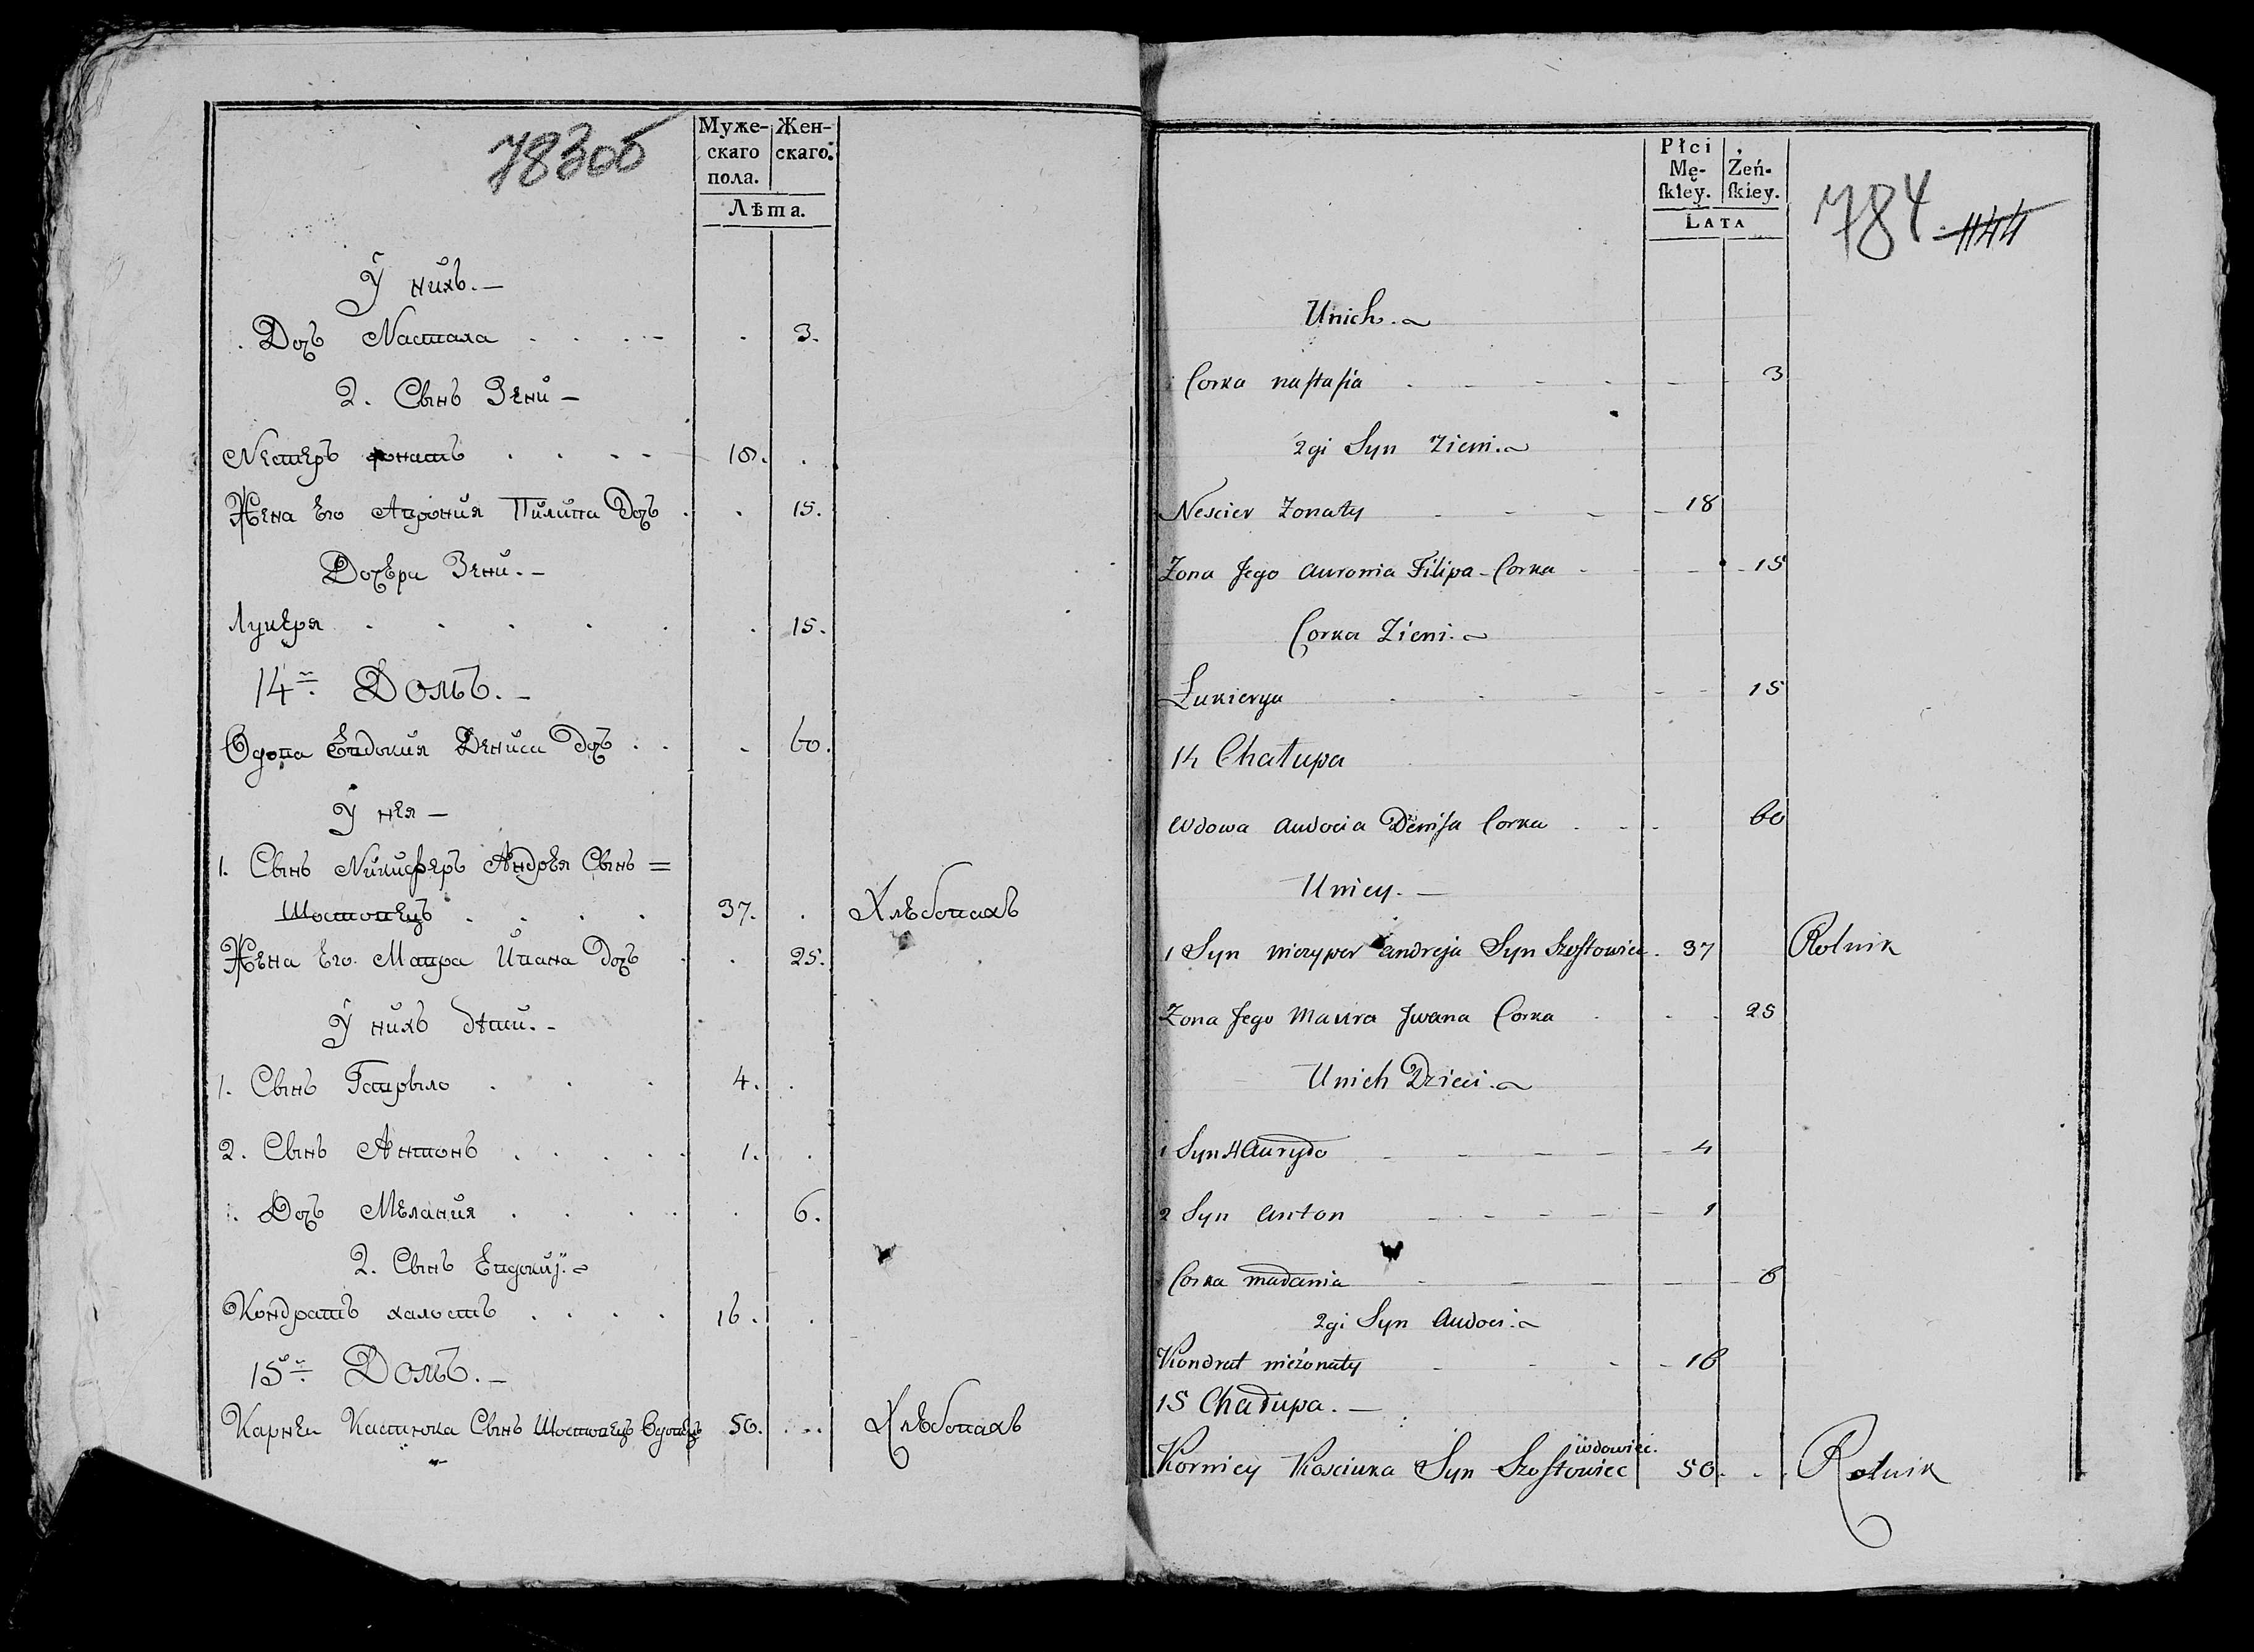 783об
Муже-
скаго
пола.
Жен-
скаго.
Лѣта.
У нихъ. —
Дочь Настаха . . . - . 3.
2. Сынъ Зени —
Нестеръ жонатъ . . . - 18. .
Жена Его Апронiя Пилипа Дочь . . 15.
Дочери Зени. —
Лукеря . . . . . . 15.
14й Домъ. —
Вдова Евдокiя Дениса дочь . . . 60.
У нея —
1. Сынъ Никиферъ Андрѣя Сынъ =
Шостовецъ . . . . 37. . Хлѣбопахъ
Жена Его Мавра Ивана дочь . . 25.
У нихъ дѣти. —
1. Сынъ Гаврыло . . . 4. .
2. Сынъ Антонъ . . . . . 1. .
Дочь Меланiя . . . . . 6.
2. Сынъ Евдокиj. ~
Кондратъ халостъ . . . . 16. .
15й Домъ. —
Карнеи Кастюка Сынъ Шостовецъ Вдовецъ 50. ... Хлѣбопахъ
Płci
Mę-
ſkiey.
Żeń-
ſkiey.
LATA
784 144
Unich. ~
Corka naſtaſia . - - - . - 3
2gi Syn Zieni. ~
Nescier Zonaty - - - - 18
Zona Jego auronia Filipa - Corka - - - 15
Corka Zieni. ~
Łukierya - - - - - 15
14 Chałupa
Wdowa audocia Deniſa Corka . . - 60
Uniey. —
1 Syn niczyper andreja Syn Szoſtowiec . 37 Rolnik
Zona Jego Maura Jwana Corka . . . 25
Unich Dzieci. ~
1 Syn Hauryło - - - - - 4
2 Syn anton - - - - - 1
Corka małania - - - - - 6
2gi Syn audoci. ~
Kondrat nieżonaty - - - - 16
15 Chałupa. —
wdowiec.
Korniey Kosciuka Syn Szoſtowiec 50. . . Rolnik